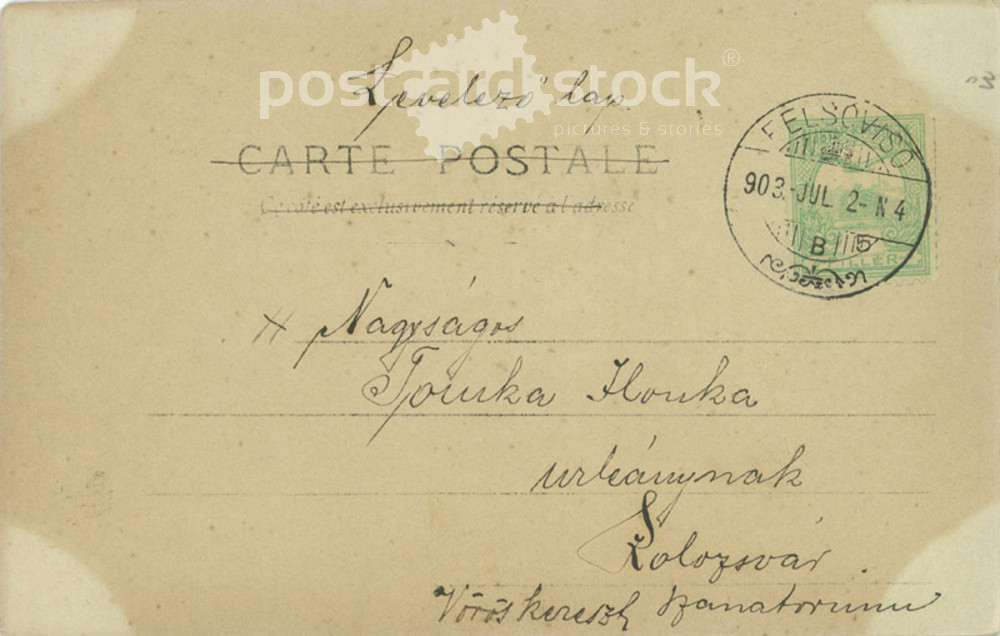 Levelező lap.
postcard stock®
pictures & stories
CARTE POSTALE
Ce côté est exclusivement réservé a l'adresse
FELSŐVISÓ
903.-JUL. 2-N4
B 5
FILLER
Nagyságos
Tomka Ilonka
urleánynak
Kolozsvár
Vöröskereszt szanatorium